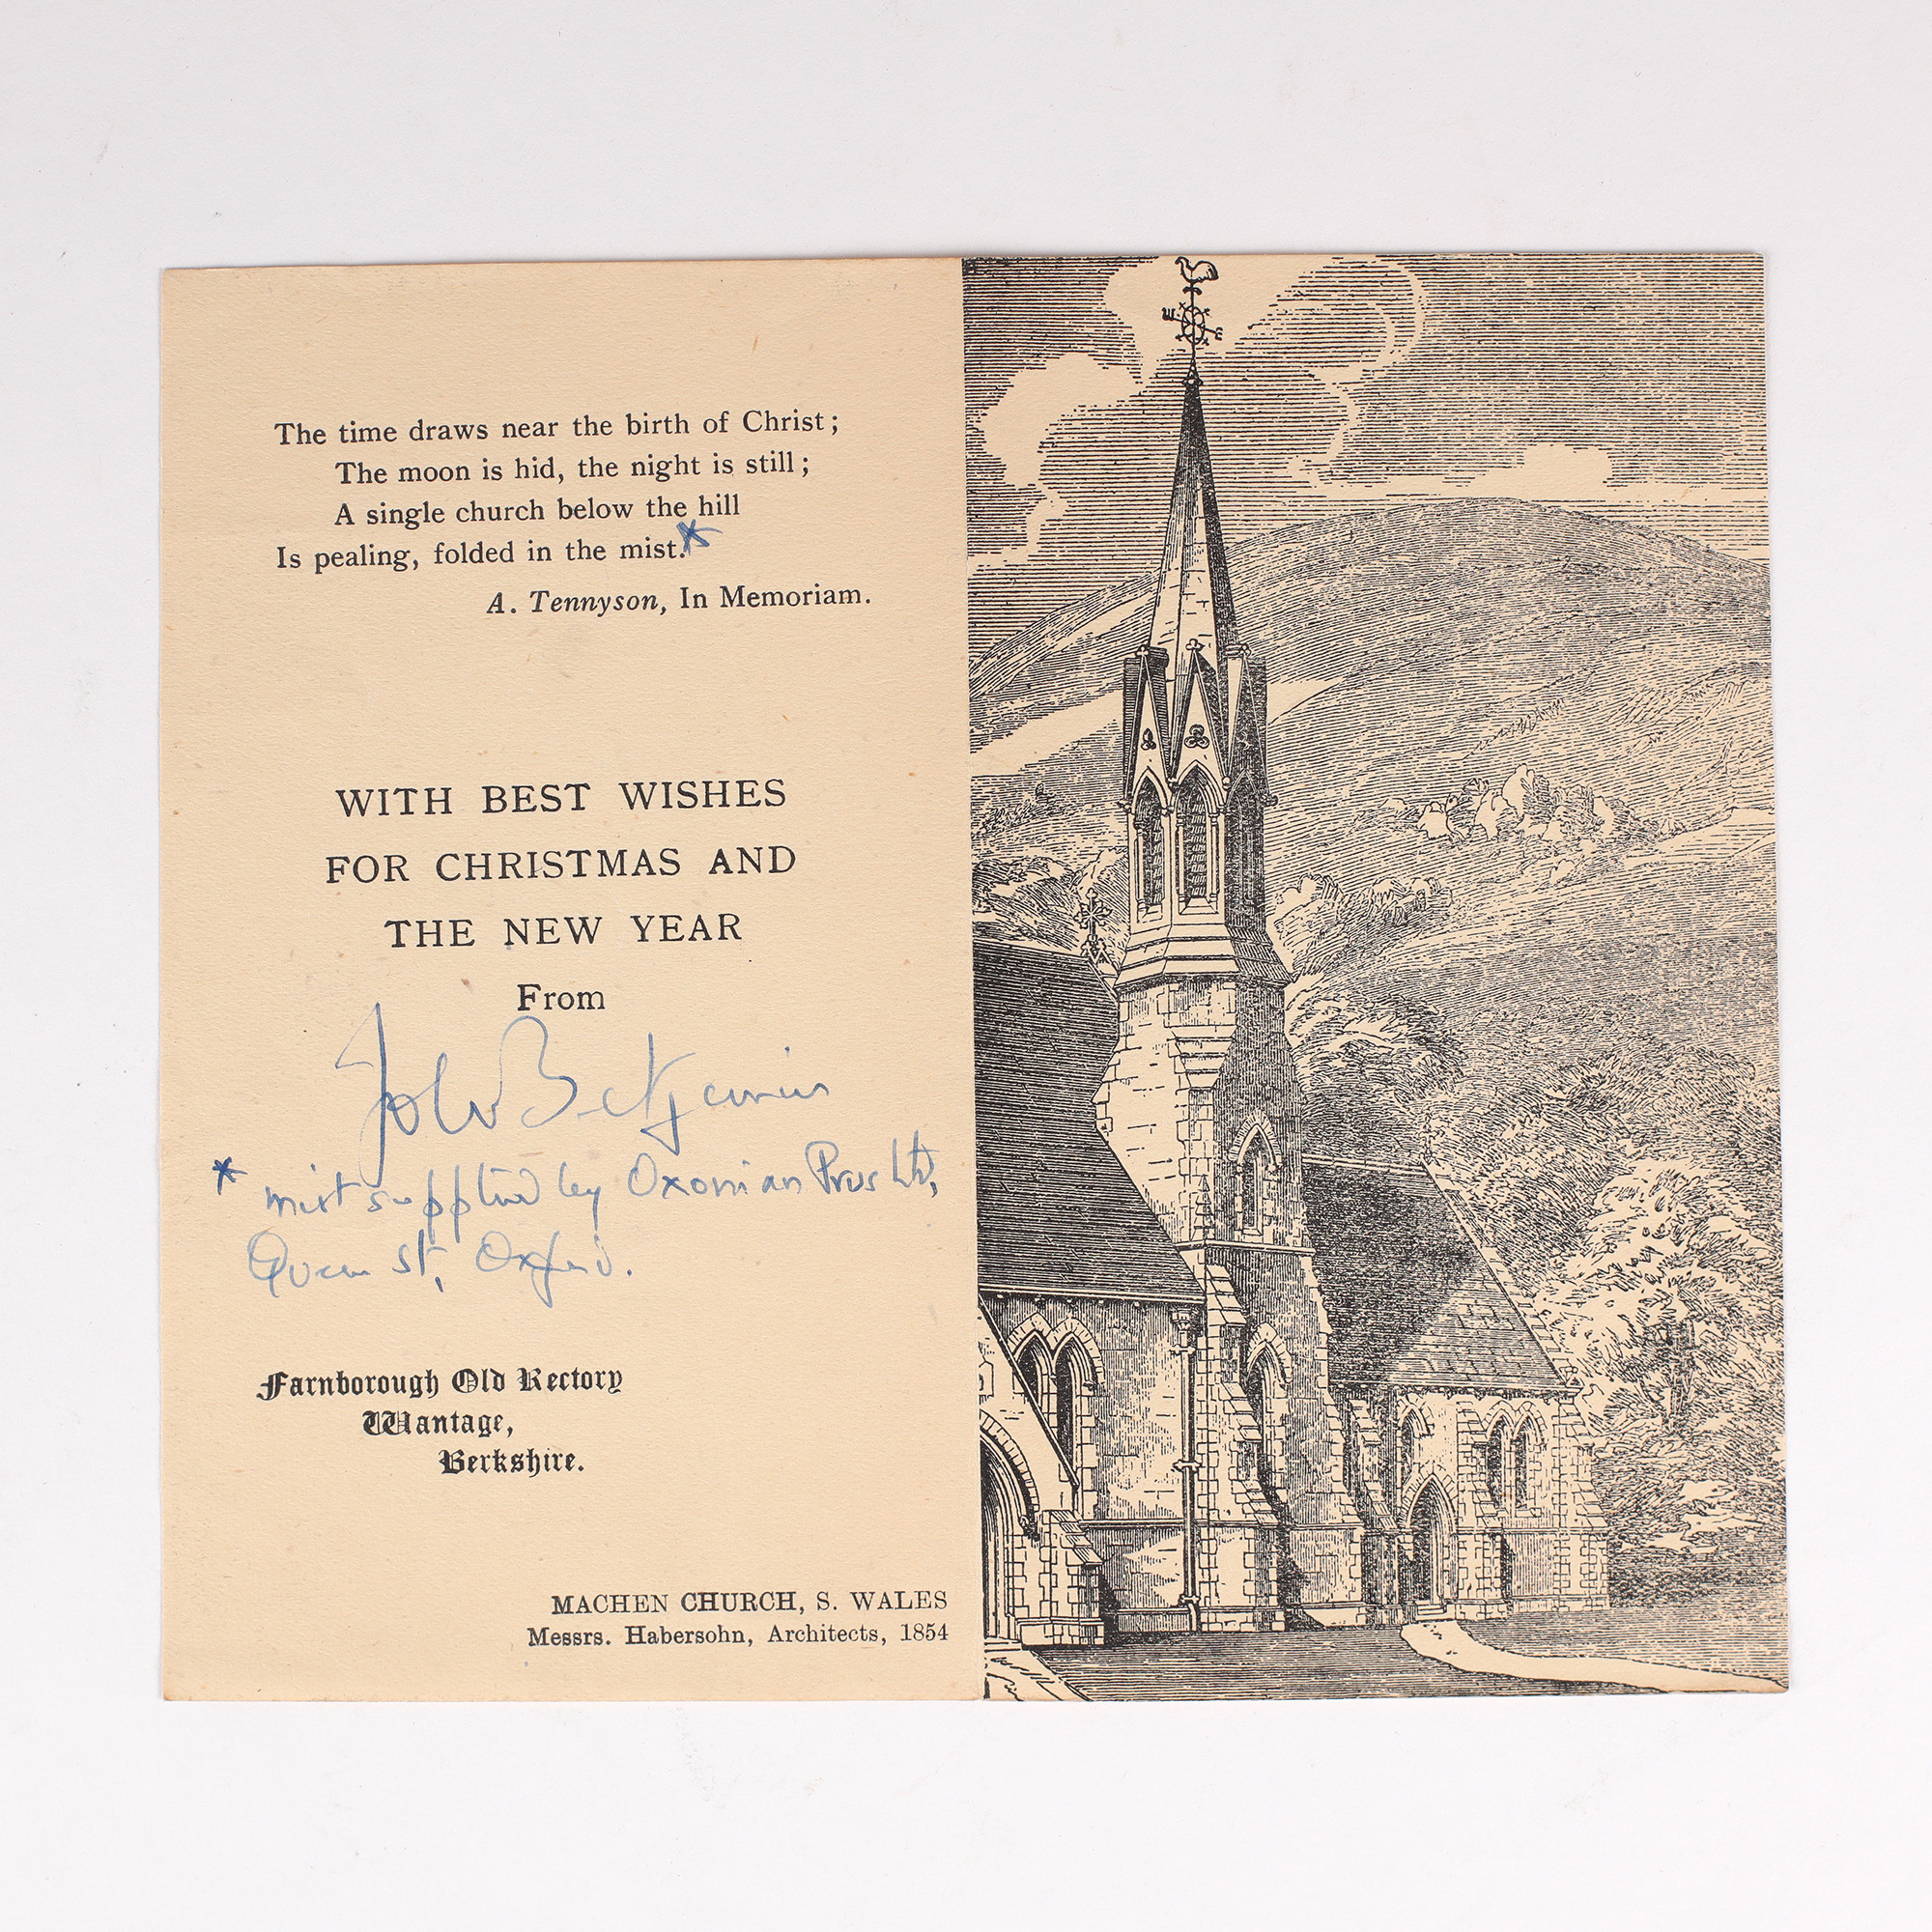 The time draws near the birth of Christ;
The moon is hid, the night is still;
A single church below the hill
Is pealing, folded in the mist.*
A. Tennyson, In Memoriam.
WITH BEST WISHES
FOR CHRISTMAS AND
THE NEW YEAR
From
John Betjeman
* mist supplied by Oxonian Press Ltd,
Queen St, Oxford.
Farnborough Old Rectory
Wantage,
Berkshire.
MACHEN CHURCH, S. WALES
Messrs. Habersohn, Architects, 1854
W E